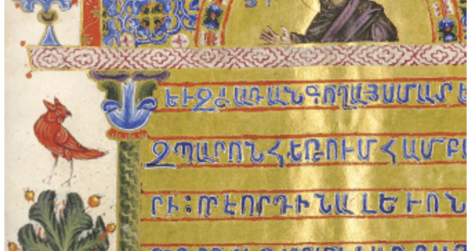 ԵՒԶԺԱՌԱՆԳՈՂԱՅՍՄԱՄԵ
ԶՊԱՐՈՆՀԵԹՈՒՄՀԱՄԲԱ
ՐԻ։ՈՐԷՈՐԴԻՆԱԼԵՒՈՆ